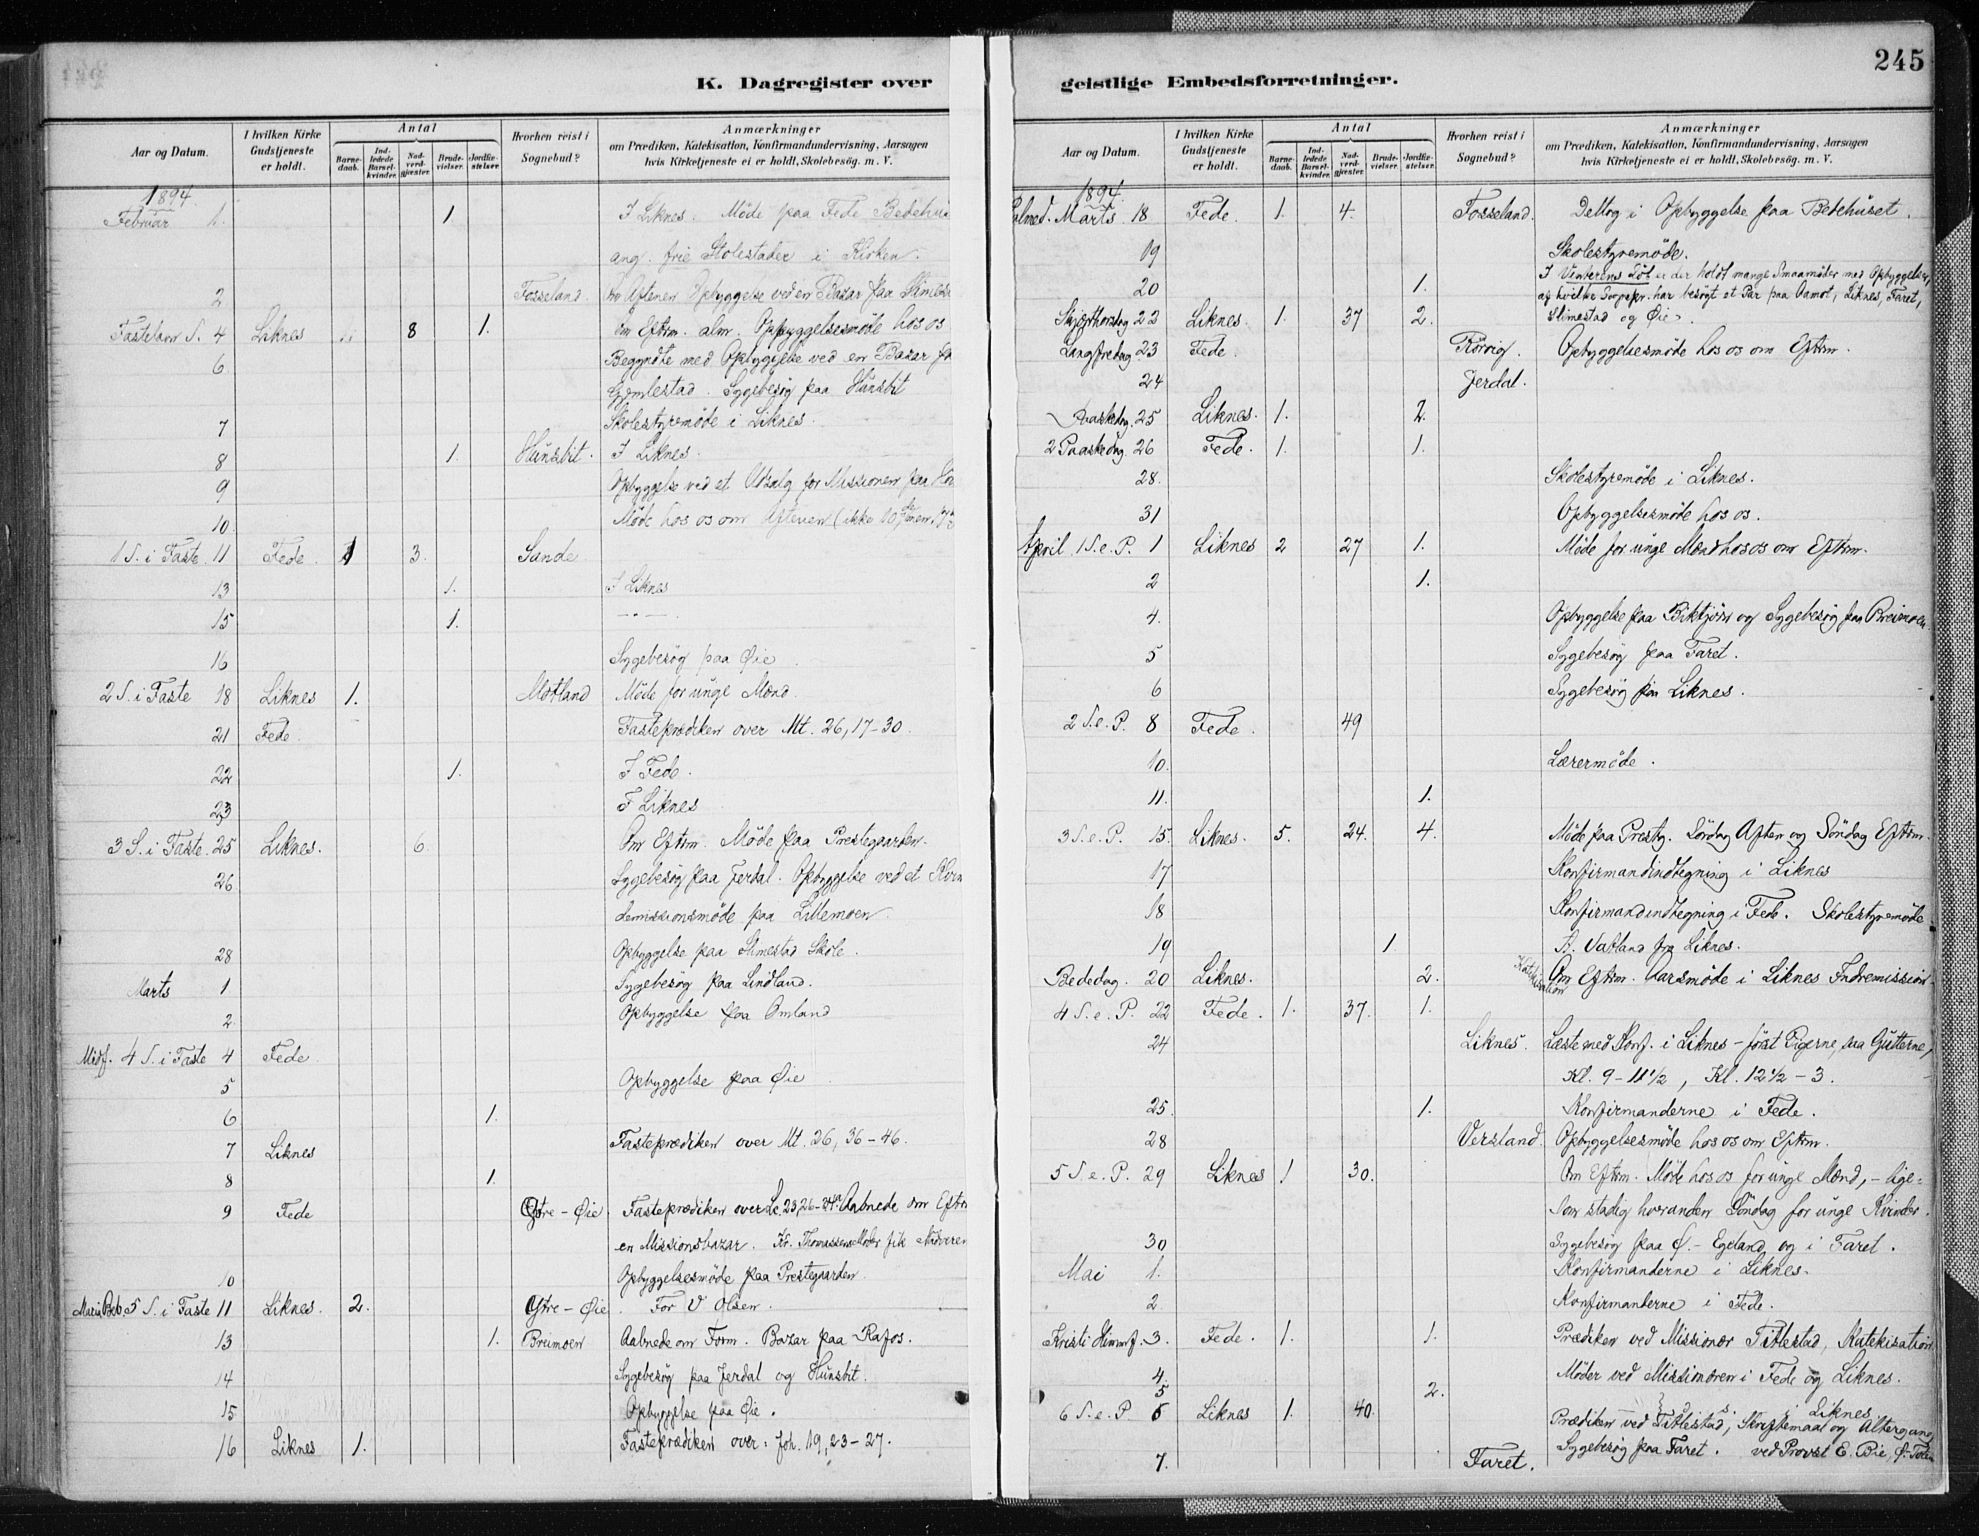 K. Dagregister over
Aar og Datum.
I hvilken Kirke Gudstjeneste er holdt.
Antal
Barne-daab.
Ind-ledede Barsel-kvinder.
Nad-verd-gjæster.
Brude-vielser.
Jordfæ-stelser.
Hvorhen reist i Sognebud?
Anmærkninger
om Prædiken, Katekisation, Konfirmandundervisning, Aarsagen
hvis Kirketjeneste ei er holdt, Skolebesög. m. V.
1894.
Februar 1. 1. I Liknes. Möde paa Fede Bedehus
ang. frie Stolestader i Kirken.
2 Fosseland. Om Aftenen Opbyggelse ved en Bazar paa
Fastelavn S. 4 Liknes 8 1. Om Eftm. alm. Opbyggelsesmöde hos os
6 Begyndte med Opbyggelse ved en Bazar
Gjemlestad. Sygebesög paa Hunsbit
7 Skolestyremöde i Liknes.
8 1. Hunsbit. I Liknes.
9 Opbyggelse ved et Udsalg for Missionen paa
10. Möde hos os om Aftenen (ikke 10
1 S. i Faste. 11 Fede. 1 3. Sande
13 1. I Liknes
15 1. — " —
16 Sygebesög paa Øie
2 S. i Faste 18 Liknes 1. Motland Möde for unge Mænd.
21 Fede. Fasteprædiken over Mt. 26, 17-30.
22 1. I Fede.
23 I Liknes
3 S. i Faste. 25 Liknes. 6. Om Eftm. Möde paa Prestegaarden.
26. Sygebesög paa Jerdal. Opbyggelse ved et Kvin
demissionsmöde paa Lillemoen.
28 Opbyggelse paa Slimestad Skole.
Marts 1 Sygebesög paa Lindland.
2. Opbyggelse paa Omland
Midf. 4 S. i Faste 4 Fede.
5 Opbyggelse paa Øie
6 1.
7 Liknes Fasteprædiken over Mt. 26, 36-46.
8 1.
9 Fede Ytre-Øie. Fasteprædiken over Lc. 23, 26-34a Aabnede om Eftm
en Missionsbazar. Kr. Thomassens Moder fik Nadveren
10 Opbyggelsesmöde paa Prestegaarden.
Mariæ Beb. 5 S. i Faste 11 Liknes. 2. Ytre-Øie. For V Olsen.
13 1. Breimoen Aabnede om Form. Bazar paa Rafos.
14 Sygebesög paa Jerdal og Hunsbit.
15 Opbyggelse paa Øie.
16 Liknes 1. Fasteprædiken over: Joh. 19, 23-27.
245
geistlige Embedsforretninger.
Aar og Datum.
I hvilken Kirke Gudstjeneste er holdt.
Antal
Barne-daab.
Ind-ledede Barsel-kvinder.
Nad-verd-gjæster.
Brude-vielser.
Jordfæ-stelser.
Hvorhen reist i Sognebud?
Anmærkninger
om Prædiken, Katekisation, Konfirmandundervisning, Aarsagen
hvis Kirketjeneste ei er holdt, Skolebesög. m. V.
1894.
Palmed. Marts 18 Fede. 1. 4. Fosseland. Deltog i Opbyggelse paa Bedehuset.
19 Skolestyremöde.
20 1. I Vinterens Löb er der holdt mange Smaamöder med Opbyggelse,
af hvilke Sognepr. har besögt et Par paa Aamot, Liknes, Faret,
Slimestad og Øie.
Skjærthorsdag 22 Liknes. 1. 37 2.
Langfredag 23 Fede. Rörvig. Opbyggelsesmöde hos os om Eftm.
24 Jerdal.
Paaskedag. 25 Liknes. 1. 2.
2 Paaskedag 26 Fede. 1. 1.
28. Skolestyremöde i Liknes.
31 Opbyggelsesmöde hos os.
April. 1 S. e. P. 1 Liknes 2 27 1. Möde for unge Mænd hos os om Eftm.
2 1.
4. Opbyggelse paa Biktjörn og Sygebesög paa Breimoen.
5 Sygebesög paa Faret.
6 Sygebesög paa Liknes.
2 S. e. P. 8 Fede. 49
10. Lærermöde.
11. 1.
3 S. e. P. 15. Liknes. 5. 24. 4. Möde paa Prestg. Lördag Aften og Söndag Eftm.
17 Konfirmandindtegning i Liknes
18 Konfirmandindtegning i Fede. Skolestyremöde.
19 1. A. Vatland fra Liknes.
Bededag. 20 Liknes. 2. Katekisation Om Eftm. Aarsmöde i Liknes Indremission.
4 S. e. P. 22 Fede. 1. 37. 1.
24 Liknes. Læste med Konf. i Liknes - först Pigerne, saa Gutterne,
Kl. 9-11½, Kl. 12½-3.
25. 1. Konfirmanderne i Fede.
28 Versland. Opbyggelsesmöde hos os om Eftm.
5 S. e. P. 29 Liknes 1 30. Om Eftm. Möde hos os for unge Mænd, - lige-
som stadig hveranden Söndag for unge Kvinder.
30 Sygebesög paa Ø.-Egeland og i Faret.
Mai 1. Konfirmanderne i Liknes.
2. Konfirmanderne i Fede.
Kristi Himmf. 3. Fede. 1. 1. Prædiken ved Missionær Titlestad, Katekisation
4. Möder ved Missionæren i Fede og Liknes.
5 2.
6 S. e. P. 6 Liknes 1. 40. Prædiken ved Titlestad, Skriftemaal og Altergang i Liknes
7. Faret. Sygebesög paa Faret. ved Provst E. Bie,